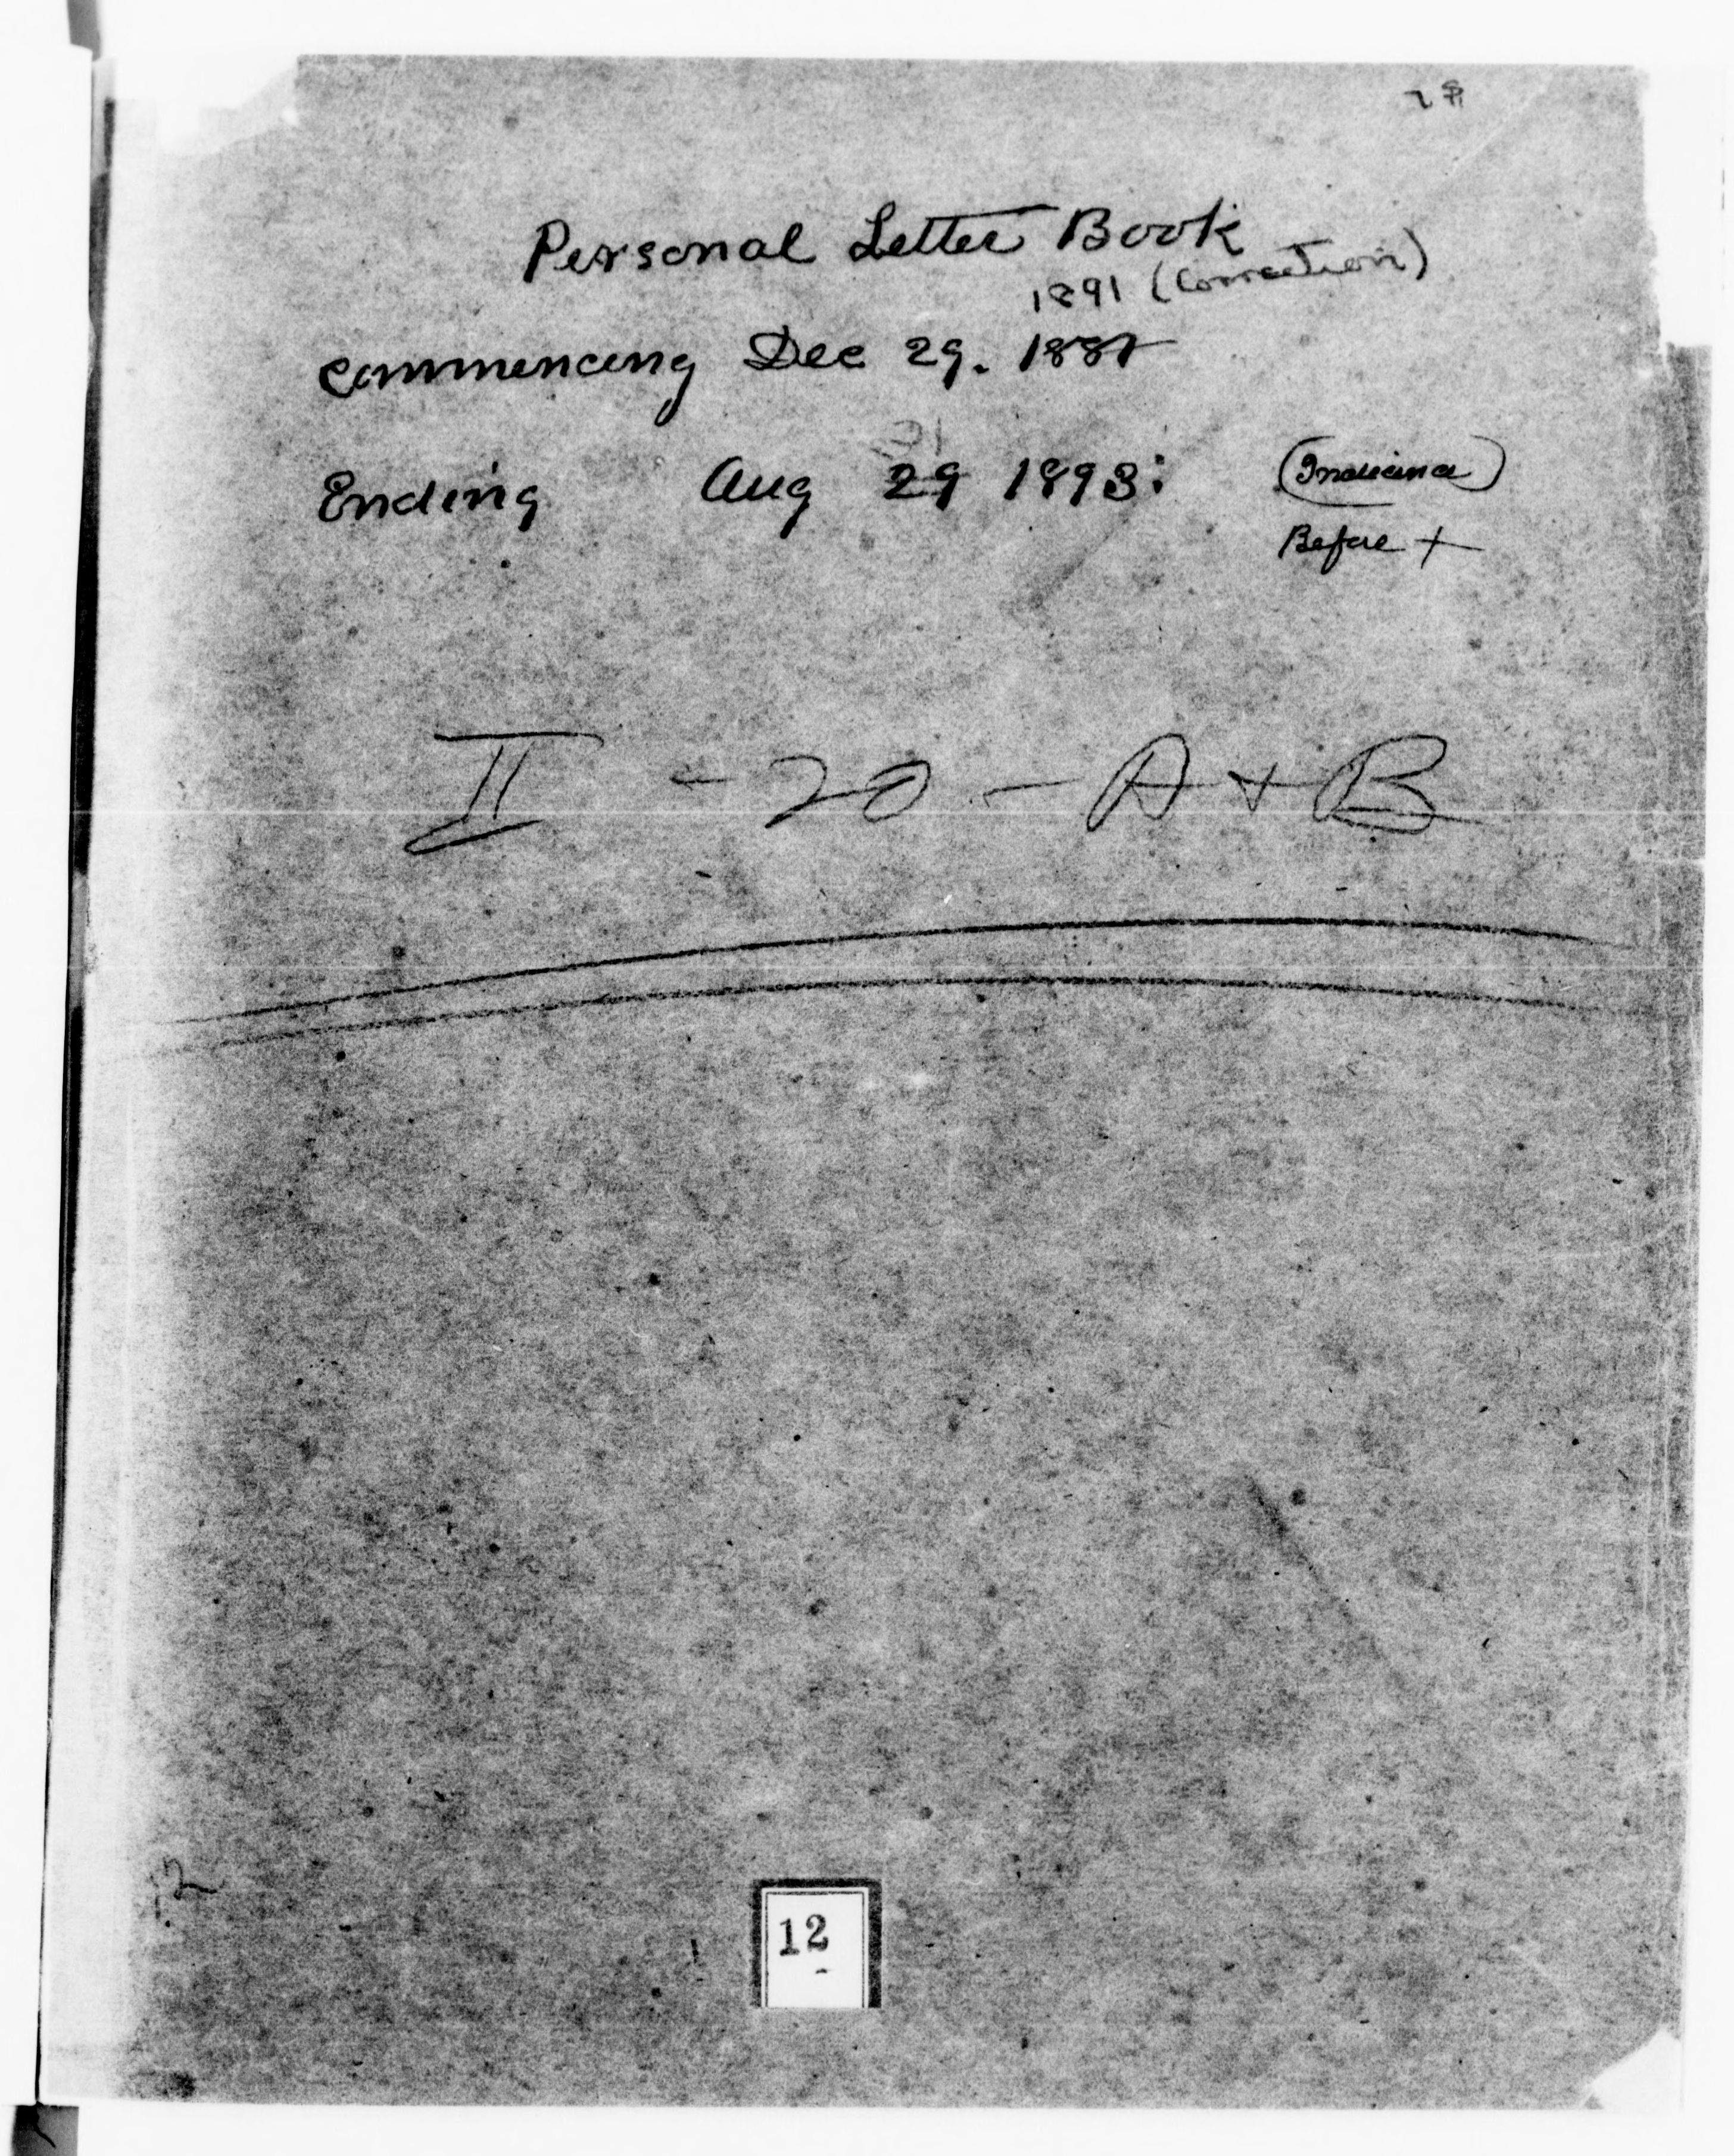 Personal Letter Book
1891 (Correction)
Commencing Dec 29. 1887
31
Ending Aug 29 1893:
Before +
II - 20 - A + B
12
12